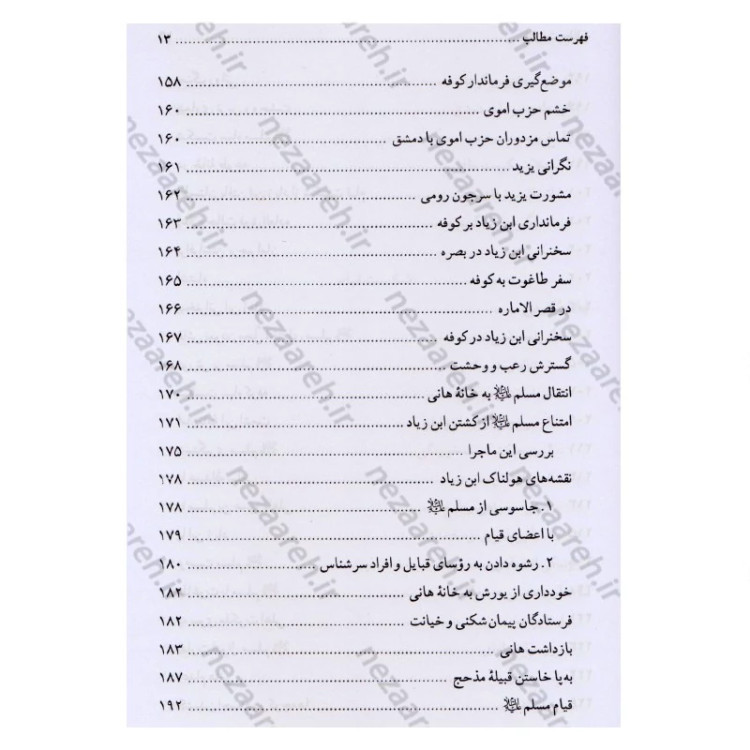 فهرست مطالب ..... ۱۳
موضع‌گیری فرماندار کوفه ..... ۱۵۸
خشم حزب اموی ..... ۱۶۰
تماس مزدوران حزب اموی با دمشق ..... ۱۶۰
نگرانی یزید ..... ۱۶۱
مشورت یزید با سرجون رومی ..... ۱۶۲
فرمانداری ابن زیاد بر کوفه ..... ۱۶۳
سخنرانی ابن زیاد در بصره ..... ۱۶۴
سفر طاغوت به کوفه ..... ۱۶۵
در قصر الاماره ..... ۱۶۶
سخنرانی ابن زیاد در کوفه ..... ۱۶۷
گسترش رعب و وحشت ..... ۱۶۸
انتقال مسلم به خانهٔ هانی ..... ۱۷۰
امتناع مسلم از کشتن ابن زیاد ..... ۱۷۱
بررسی این ماجرا ..... ۱۷۵
نقشه‌های هولناک ابن زیاد ..... ۱۷۸
۱. جاسوسی از مسلم ..... ۱۷۸
با اعضای قیام ..... ۱۷۹
۲. رشوه دادن به رؤسای قبایل و افراد سرشناس ..... ۱۸۰
خودداری از یورش به خانهٔ هانی ..... ۱۸۲
فرستادگان پیمان شکنی و خیانت ..... ۱۸۲
بازداشت هانی ..... ۱۸۳
به‌پا خاستن قبیلهٔ مذحج ..... ۱۸۷
قیام مسلم ..... ۱۹۲
nezaareh.ir